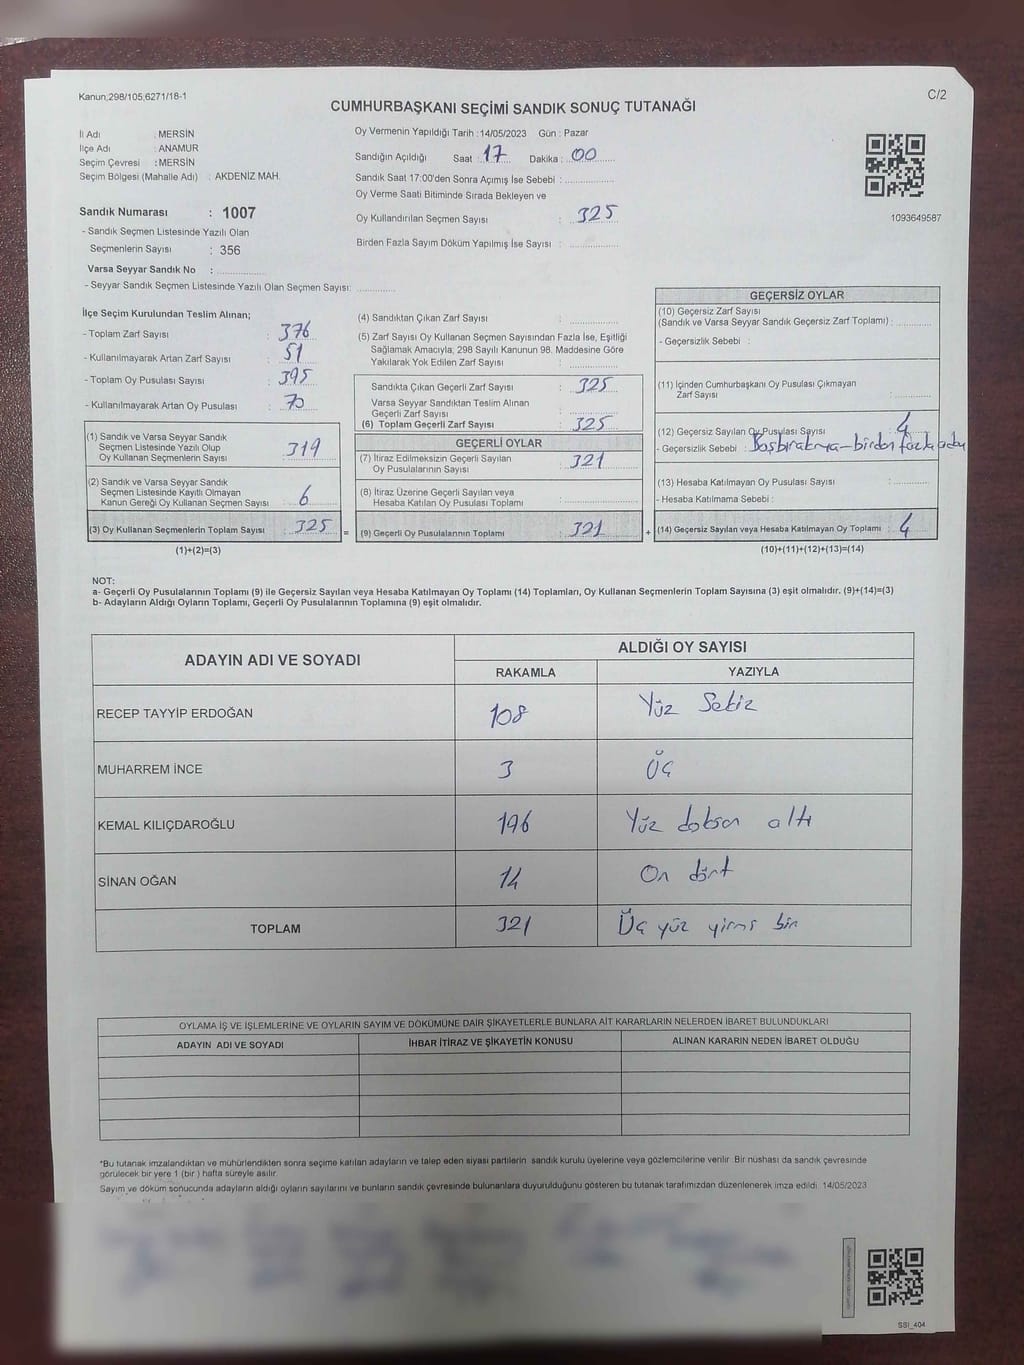 Kanun;298/105,6271/18-1
C/2
CUMHURBAŞKANI SEÇİMİ SANDIK SONUÇ TUTANAĞI
İl Adı : MERSİN
İlçe Adı : ANAMUR
Seçim Çevresi : MERSİN
Seçim Bölgesi (Mahalle Adı) : AKDENİZ MAH.
Oy Vermenin Yapıldığı Tarih : 14/05/2023 Gün : Pazar
Sandığın Açıldığı Saat : 17 Dakika : 00
Sandık Saat 17:00'den Sonra Açımış İse Sebebi :
Oy Verme Saati Bitiminde Sırada Bekleyen ve
Oy Kullandırılan Seçmen Sayısı : 325
Birden Fazla Sayım Döküm Yapılmış İse Sayısı :
1093649587
Sandık Numarası : 1007
- Sandık Seçmen Listesinde Yazılı Olan
Seçmenlerin Sayısı : 356
Varsa Seyyar Sandık No :
- Seyyar Sandık Seçmen Listesinde Yazılı Olan Seçmen Sayısı:
İlçe Seçim Kurulundan Teslim Alınan;
- Toplam Zarf Sayısı : 376
- Kullanılmayarak Artan Zarf Sayısı : 51
- Toplam Oy Pusulası Sayısı : 395
- Kullanılmayarak Artan Oy Pusulası : 70
(1) Sandık ve Varsa Seyyar Sandık
Seçmen Listesinde Yazılı Olup
Oy Kullanan Seçmenlerin Sayısı : 319
(2) Sandık ve Varsa Seyyar Sandık
Seçmen Listesinde Kayıtlı Olmayan
Kanun Gereği Oy Kullanan Seçmen Sayısı : 6
(3) Oy Kullanan Seçmenlerin Toplam Sayısı : 325 =
(1)+(2)=(3)
(4) Sandıktan Çıkan Zarf Sayısı :
(5) Zarf Sayısı Oy Kullanan Seçmen Sayısından Fazla İse, Eşitliği
Sağlamak Amacıyla, 298 Sayılı Kanunun 98. Maddesine Göre
Yakılarak Yok Edilen Zarf Sayısı :
Sandıkta Çıkan Geçerli Zarf Sayısı : 325
Varsa Seyyar Sandıktan Teslim Alınan
Geçerli Zarf Sayısı :
(6) Toplam Geçerli Zarf Sayısı : 325
GEÇERLİ OYLAR
(7) İtiraz Edilmeksizin Geçerli Sayılan
Oy Pusulalarının Sayısı : 321
(8) İtiraz Üzerine Geçerli Sayılan veya
Hesaba Katılan Oy Pusulası Toplamı :
(9) Geçerli Oy Pusulalarının Toplamı : 321 +
GEÇERSİZ OYLAR
(10) Geçersiz Zarf Sayısı
(Sandık ve Varsa Seyyar Sandık Geçersiz Zarf Toplamı) :
- Geçersizlik Sebebi :
(11) İçinden Cumhurbaşkanı Oy Pusulası Çıkmayan
Zarf Sayısı :
(12) Geçersiz Sayılan Oy Pusulası Sayısı : 4
- Geçersizlik Sebebi : Boşbırakma-birden fazla
(13) Hesaba Katılmayan Oy Pusulası Sayısı :
- Hesaba Katılmama Sebebi :
(14) Geçersiz Sayılan veya Hesaba Katılmayan Oy Toplamı : 4
(10)+(11)+(12)+(13)=(14)
NOT:
a- Geçerli Oy Pusulalarının Toplamı (9) ile Geçersiz Sayılan veya Hesaba Katılmayan Oy Toplamı (14) Toplamları, Oy Kullanan Seçmenlerin Toplam Sayısına (3) eşit olmalıdır. (9)+(14)=(3)
b- Adayların Aldığı Oyların Toplamı, Geçerli Oy Pusulalarının Toplamına (9) eşit olmalıdır.
ADAYIN ADI VE SOYADI
ALDIĞI OY SAYISI
RAKAMLA YAZIYLA
RECEP TAYYİP ERDOĞAN 108 Yüz Sekiz
MUHARREM İNCE 3 Üç
KEMAL KILIÇDAROĞLU 196 Yüz doksan altı
SİNAN OĞAN 14 On dört
TOPLAM 321 Üç yüz yirmi bir
OYLAMA İŞ VE İŞLEMLERİNE VE OYLARIN SAYIM VE DÖKÜMÜNE DAİR ŞİKAYETLERLE BUNLARA AİT KARARLARIN NELERDEN İBARET BULUNDUKLARI
ADAYIN ADI VE SOYADI İHBAR İTİRAZ VE ŞİKAYETİN KONUSU ALINAN KARARIN NEDEN İBARET OLDUĞU
*Bu tutanak imzalandıktan ve mühürlendikten sonra seçime katılan adayların ve talep eden siyasi partilerin sandık kurulu üyelerine veya gözlemcilerine verilir. Bir nüshası da sandık çevresinde
görülecek bir yere 1 (bir ) hafta süreyle asılır.
Sayım ve döküm sonucunda adayların aldığı oyların sayılarını ve bunların sandık çevresinde bulunanlara duyurulduğunu gösteren bu tutanak tarafımızdan düzenlenerek imza edildi. 14/05/2023
SSI_404